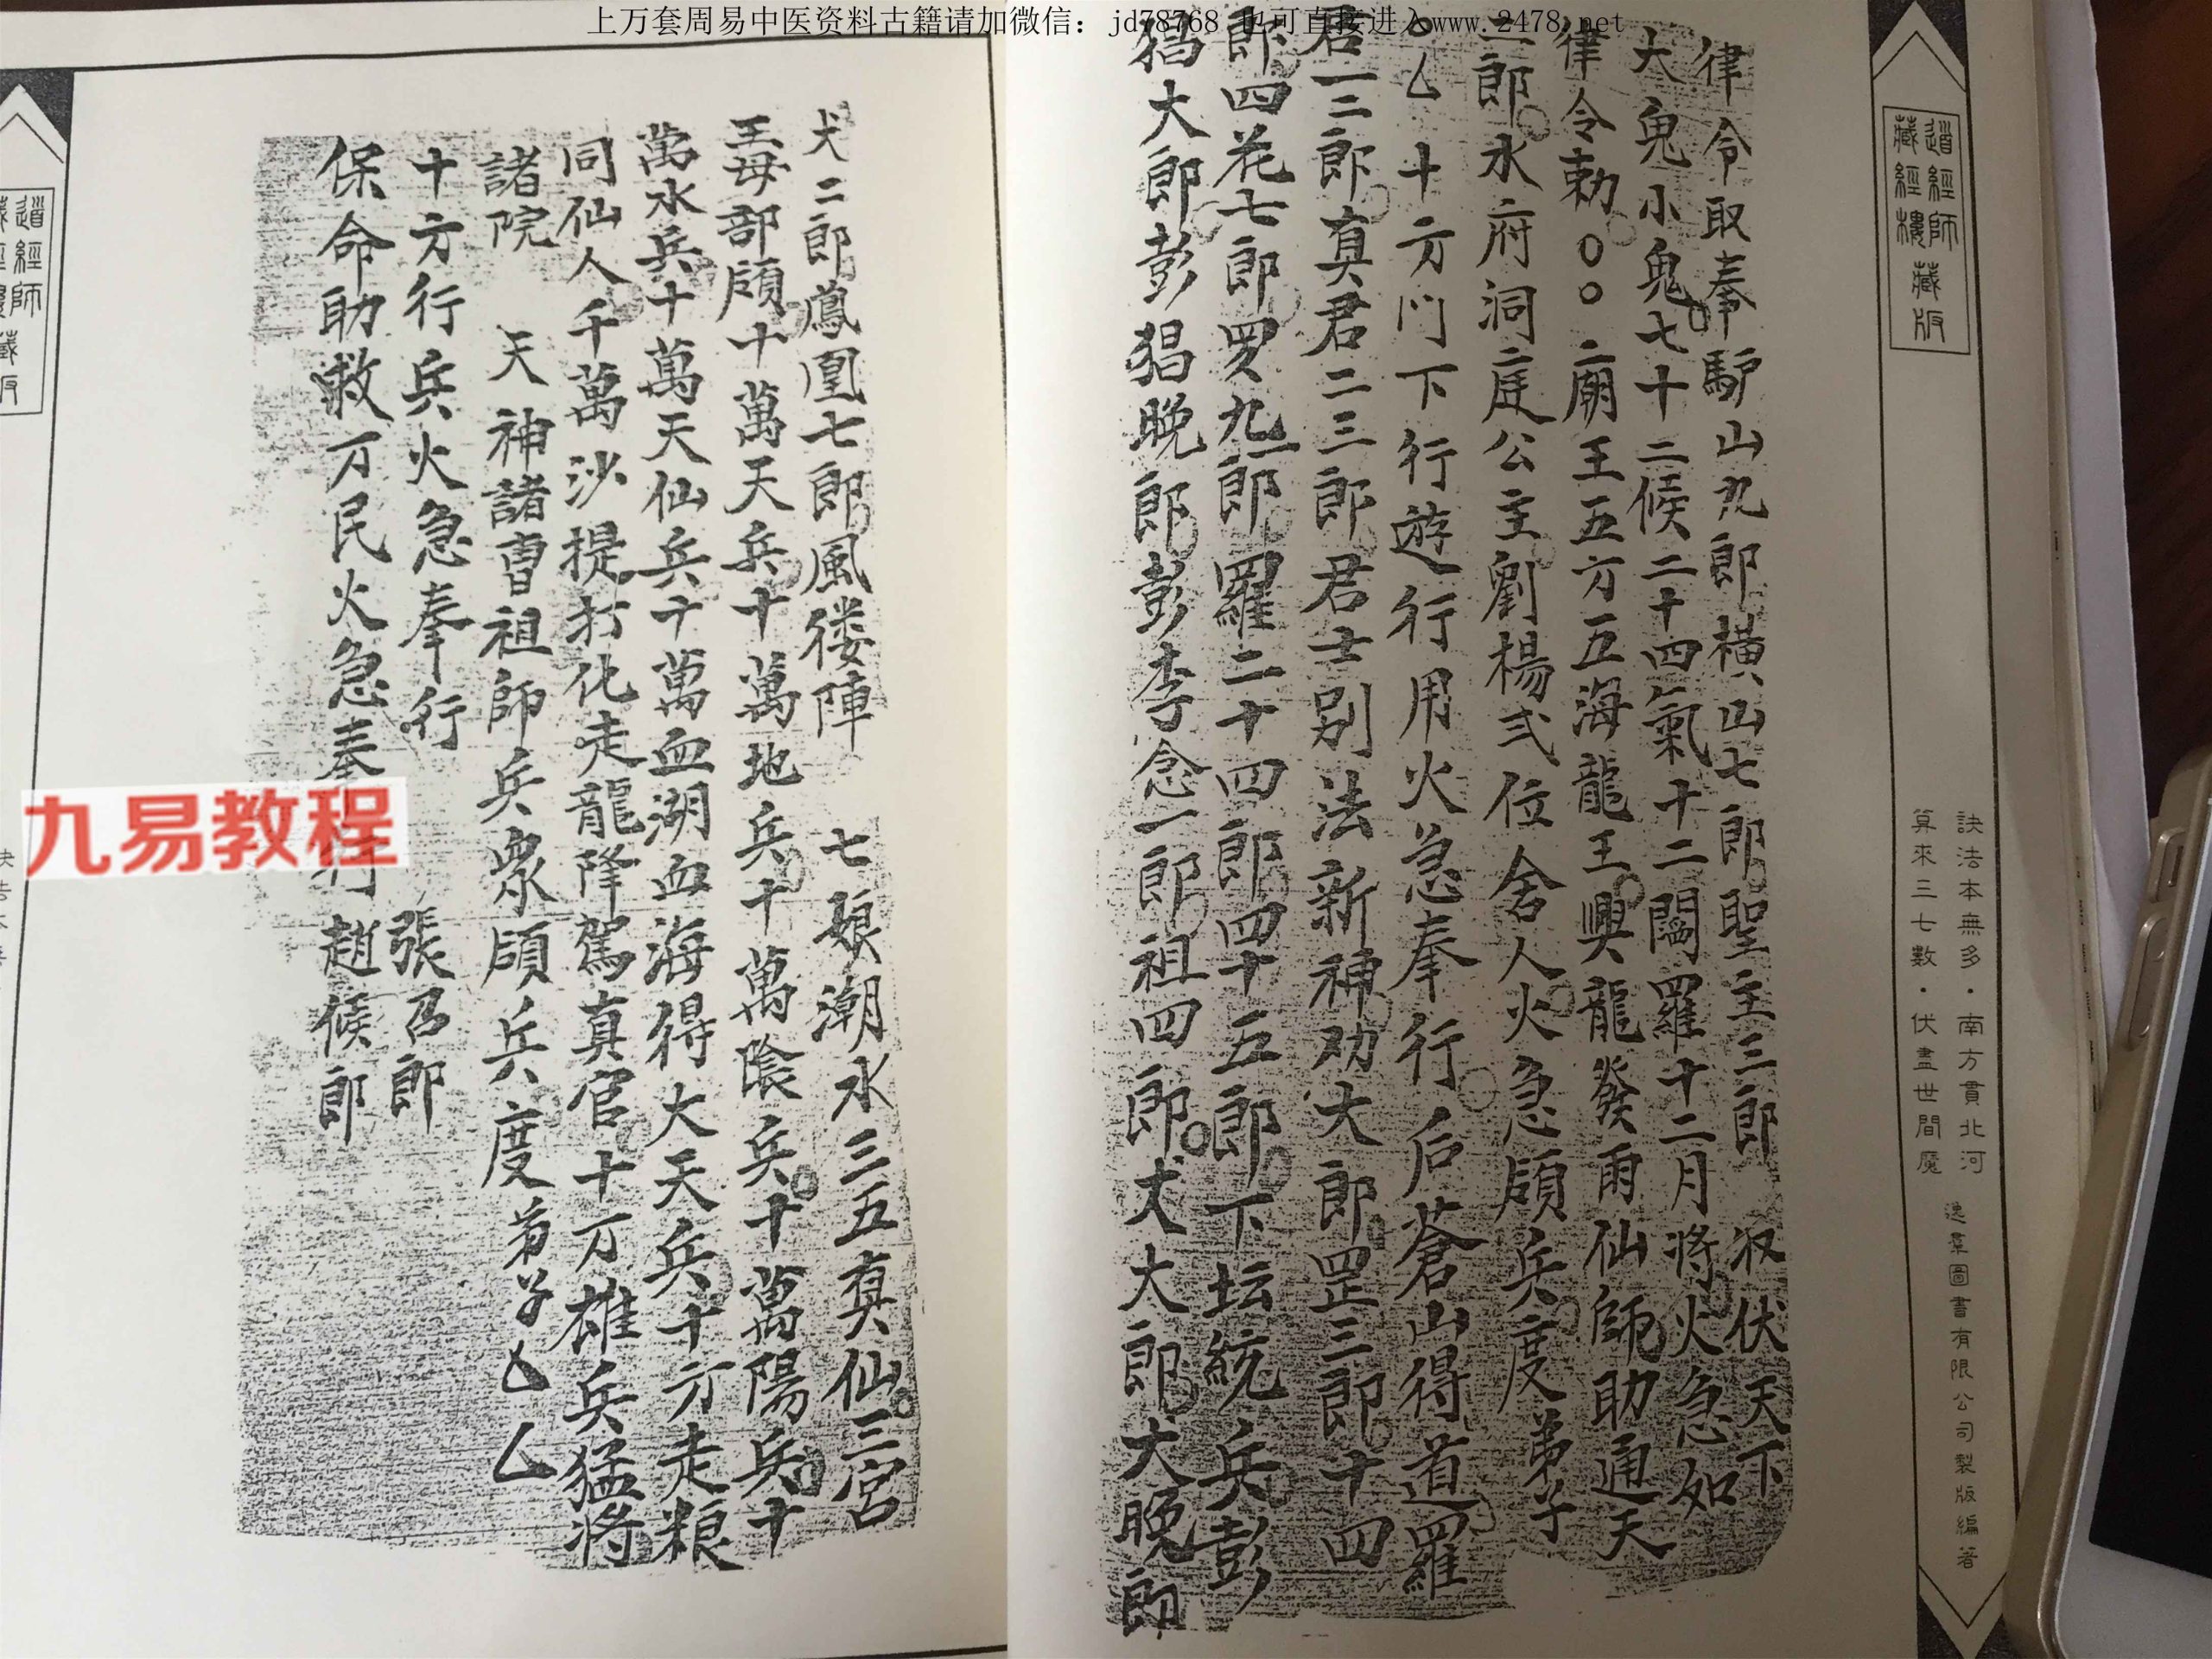 上万套周易中医资料古籍请加微信：jd78768 也可直接进入www.2478.net
道經師
藏經樓藏版
訣法本無多·南方貫北河
算來三七數·伏盡世間魔
逸羣圖書有限公司製版編著
律令取奉馿山九郎横山七郎聖主三郎 收伏天下
大鬼小鬼七十二候二十四氣十二闔羅十二月將火急如
律令勅〇〇。庙王五方五海龍王興龍發雨仙師助通天
二郎水府洞庭公主劉楊弍位舍人火急頋兵度弟子
〇乙十方门下行遊行用火急奉行后蒼山得道羅
君一二郎真君二三郎君士别法新神劝大郎罡三郎十四
郎四花七郎罗九郎羅二十四郎四十五郎下坛統兵彭
猖大郎彭猖晚郎彭李念一郎祖四郎犬大郎犬晚郎
犬二郎鳳凰七郎風㣩陣 七娘潮水三五真仙三宮
王母部頋十萬天兵十萬地兵十萬陰兵十萬陽兵十
萬水兵十萬天仙兵十萬血湖血海得大天兵十方走粮
同仙人千萬沙提打化走龍降駕真官十万雄兵猛將
諸院 天神諸曹祖師兵衆頋兵度弟子乙乙
十方行兵火急奉行 張召郎
保命助救万民火急奉行趙候郎
九易教程